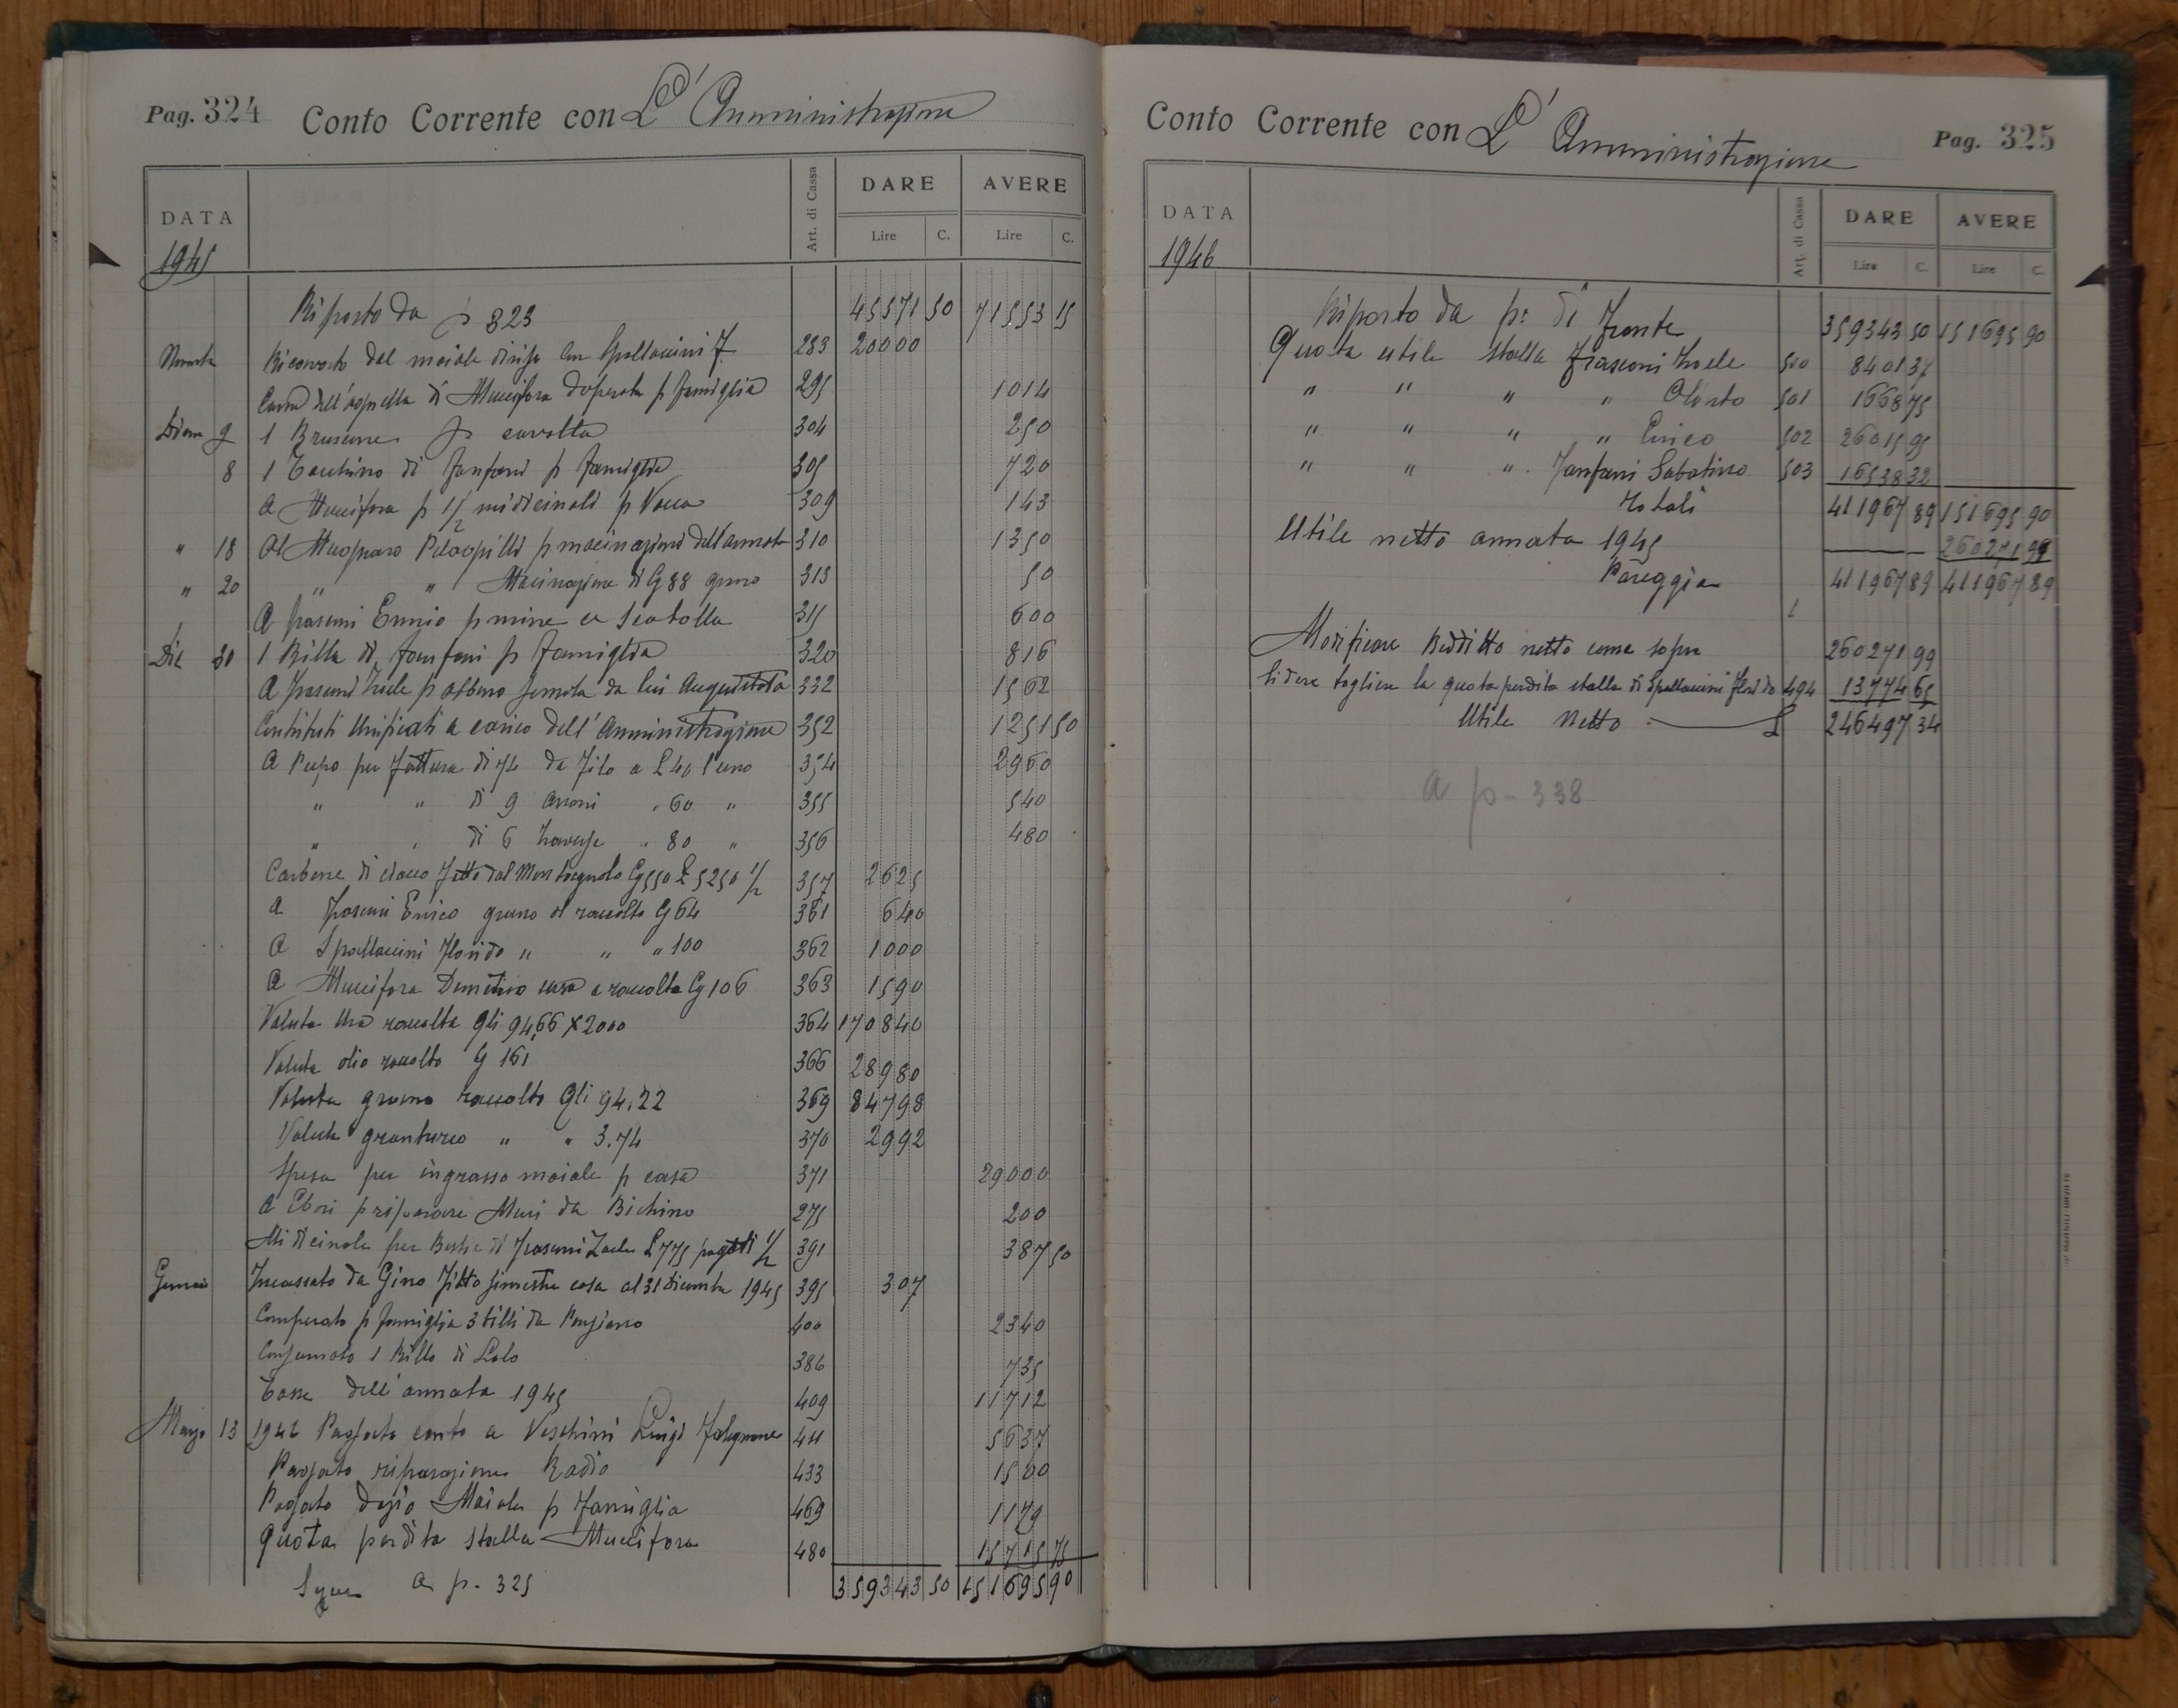 Pag. 324 Conto Corrente con L'Amministrazione
DATA Art. di Cassa DARE AVERE
Lire C. Lire C.
1945
Riporto da p 323 45571 50 71553 15
Ricavato del maiale diviso con Spallaccini F 283 20000
Carne dell'agnella di Muccifora doperata p famiglia 295 1014
Dicem 9 1 p 304 250
8 1 Tacchino di Fanfani p famiglia 305 720
A Muccifora p 1/2 midicinali p Vacca 309 143
" 18 Al p macinazioni dell'annata 310 1350
" 20 " " Macinazione di G 88 grano 313 50
A Frasconi Ennio p mine e Scatolla 315 600
Dic 30 1 Billo di Fanfani p famiglia 320 816
A Frasconi p da lui 332 1562
Contributi Unificati a carico dell'Amministrazione 352 1251 50
A Pepo per fattura di 74 da filo a £ 40 l'uno 354 2960
" " di 9 " 60 " 355 540
" " di 6 traverse " 80 " 356 480
Carbone di fatto dal Montagnolo Cg 550 £ 5250 1/2 357 2625
A Frasconi Enrico grano al raccolto G 64 361 640
A Spallaccini Florido " " " 100 362 1000
A Muccifora Demetrio a raccolta Cg 106 363 1590
Valuta Uva raccolta Qli 94,66 X 2000 364 170840
Valuta olio raccolto G 161 366 28980
Valuta grano raccolto Qli 94.22 369 84798
Valuta granturco " " 3.74 370 2992
Spesa per ingrasso maiale p casa 371 29000
A p riparare Muri da Bichino 275 200
Midicinale per Bestie di Frasconi £ 775 pagati 1/2 391 387 50
Gennaio Incassato da Gino fitto simestre casa al 31 dicembre 1945 395 307
Comperato p famiglia 3 billi da 400 2340
Consumato 1 Billo di Lalo 386 735
Tasse dell'annata 1945 409 11712
Marzo 13 1946 Pagato conto a Veschini Luigi Falegname 411 5637
Pagato riparazione Radio 433 1500
Pagato dazio Maiale p famiglia 469 1179
Quota perdita stalla Muccifora 480 15715 75
Segue a p. 325 359343 50 151695 90
Conto Corrente con L'Amministrazione Pag. 325
DATA Art. di Cassa DARE AVERE
Lire C. Lire C.
1946
Riporto da p: di fronte 359343 50 151695 90
Quota utile stalla Frasconi 500 8401 37
" " " " 501 1668 75
" " " " Enrico 502 26015 95
" " " Fanfani Sabatino 503 16538 32
Totali 411967 89 151695 90
Utile netto annata 1945 260271 99
Pareggia 411967 89 411967 89
Reddito netto come sopra 260271 99
togliere la quota perdita stalla di Spallaccini Florido 494 13774 65
Utile Netto L 246497 34
a p- 338